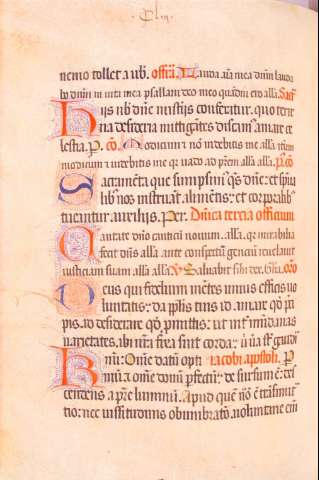 . Cliij .
nemo tollet a uob. offm. Lauda aīa mea dnm lauda
bo dnm in uita mea psallam deo meo quādiu ero allā. Sacͣ
His nob dñe mistījs conferatur. quo terre
na desideria mitigātes discam⁹ amare ce
lestia. P. cō. Modicum ⁊ nō uidebitis me allā itēm
modicum ⁊ uidebitis me qr uado ad prēm allā allā. p. cō
Sacramēta que sumpsim⁹ qs dñe: et spiri
lib⁹ nos instruāt alimētis: et corporalib⁹
tueantur auxilijs. Per. Dnīca tercia officium
Cantate dnō canticū nouum. allā. qr mirabilia
fecit dns allā ante conspectū gencium reuelauit
iusticiam suam allā allā. V Saluabit sibi dex. Glīa. orō
Deus qui fidelium mētes unius efficis uo
luntatis: da pplis tuis id amare qd p̄ci
pis. id desiderare qd promittis: ut int̄ mūdanas
uarietates. ibi nr̄a fixa sint corda: ubi uā sūt gaudia
Rmi: Om̄e datū opti iacobi apostoli. P
mū: ⁊ om̄e donū pfectū: de sursum ē: des
cendens a pr̄e luminū. Apud quē nō ē trāsmuta
tio: nec uissitudinis obumbratō. uoluntarie em̄